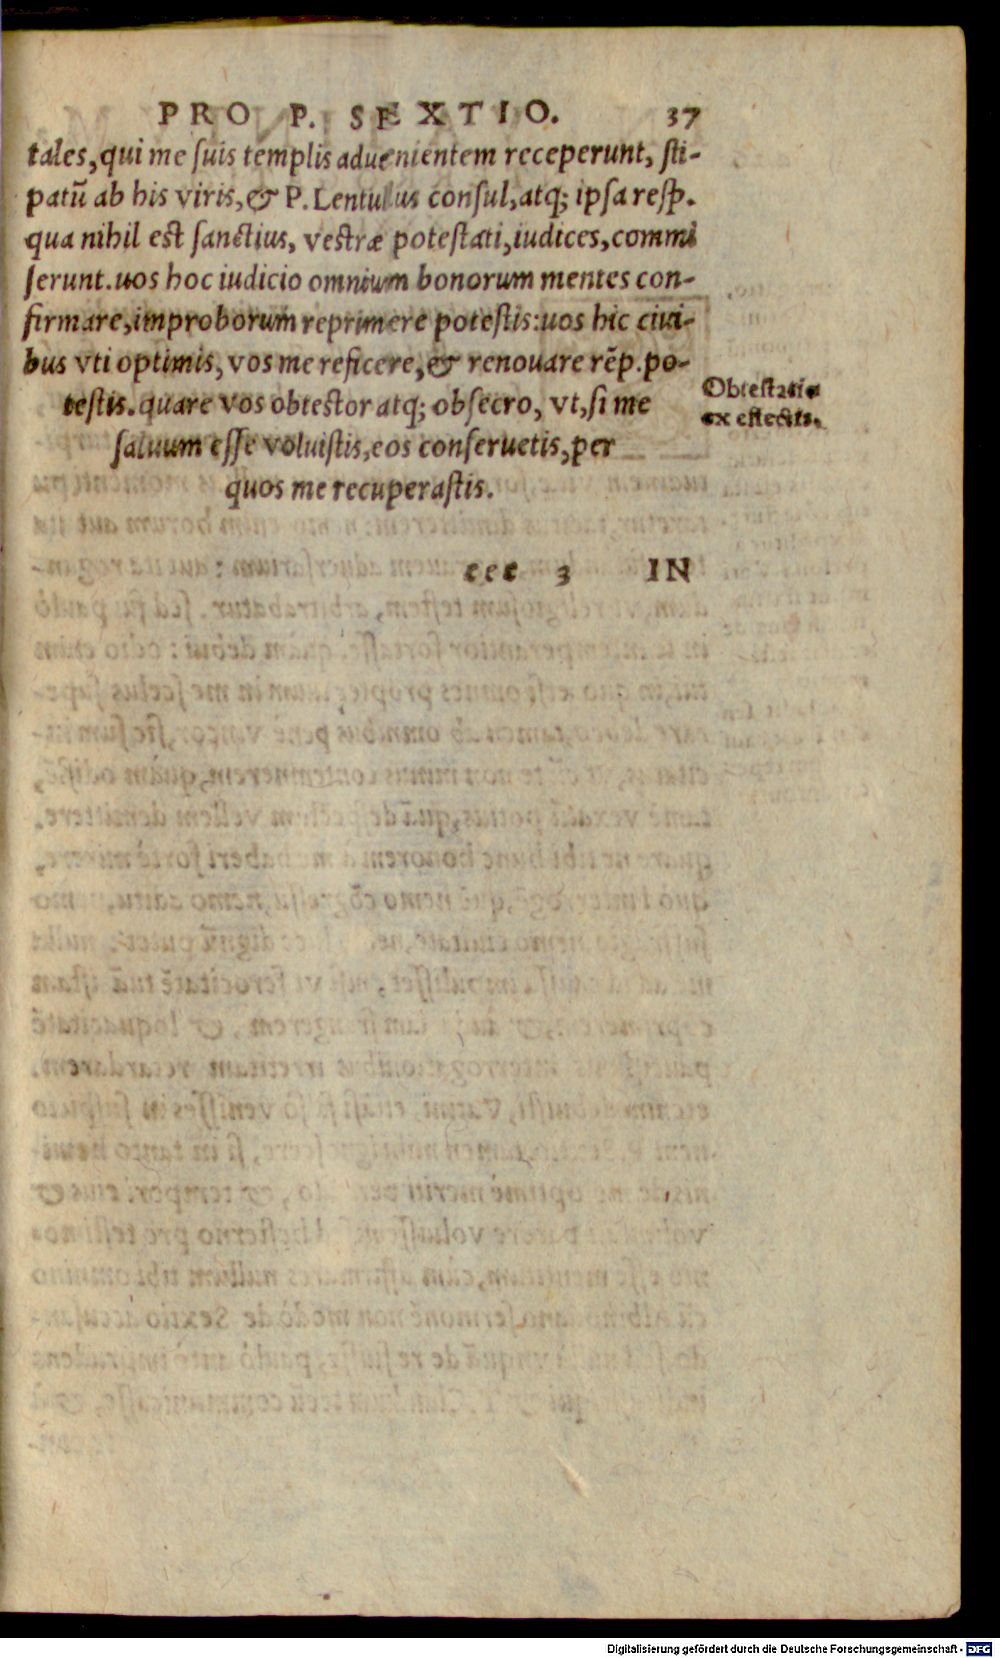 PRO P. SEXTIO. 37
tales, qui me ſuis templis aduenientem receperunt, ſti-
patū ab his viris, & P. Lentulus conſul, atq; ipſa reſp.
qua nihil est ſanctius, vestræ poteſtati, iudices, commi
ſerunt. uos hoc iudicio omnium bonorum mentes con-
firmare, improborum reprimere poteſtis: uos hic ciui-
bus vti optimis, vos me reficere, & renouare rēp. po-
teſtis. quare vos obtestor atq; obſecro, vt, ſi me
ſaluum eſſe voluiſtis, eos conſeruetis, per
quos me recuperaſtis.
Obteſtatio
ex effectis.
ccc 3 IN
Digitalisierung gefördert durch die Deutsche Forschungsgemeinschaft - DFG